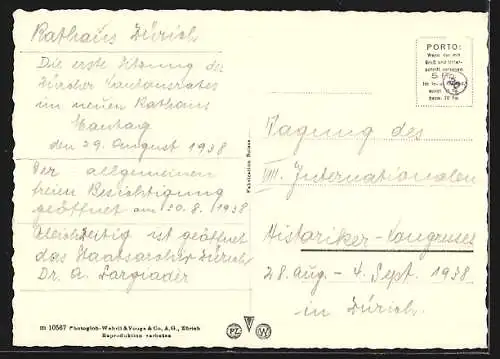 Rathaus Zürich
Die erste Sitzung des
Zürcher Kantonsrates
im neuen Rathaus
Montag
den 29. August 1938
Der allgemeinen
freien Besichtigung
geöffnet am 20.8.1938
Gleichzeitig ist geöffnet
das Staatsarchiv Zürich
Dr. A. Largiadèr
m 10567 Photoglob-Wehrli & Vouga & Co., A.G., Zürich
Reproduktion verboten
Fabrication Suisse
PZ W
PORTO:
Wenn nur mit
Gruß und Unter-
schrift versehen
5
Tagung des
VIII. Internationalen
Historiker-Kongresses
28. Aug - 4. Sept. 1938
in Zürich.